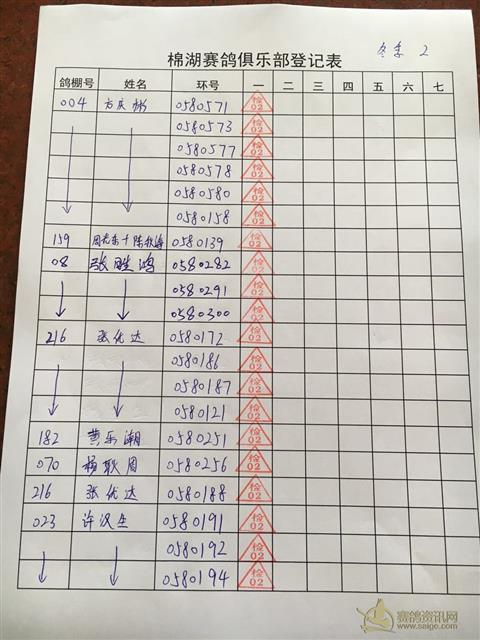 冬季 2
棉湖赛鸽俱乐部登记表
鸽棚号 姓名 环号 一 二 三 四 五 六 七
004 方庆彬 0580571 检02
0580573 检02
0580577 检02
0580578 检02
0580580 检02
0580158 检02
159 0580139 检02
08 张胜鸿 0580282 检02
0580291 检02
0580300 检02
216 张优达 0580172 检02
0580186 检02
0580187 检02
0580121 检02
182 黄乐潮 0580251 检02
070 杨耿周 0580256 检02
216 张优达 0580188 检02
023 许汉生 0580191 检02
0580192 检02
0580194 检02
赛鸽资讯网
www.saige.com